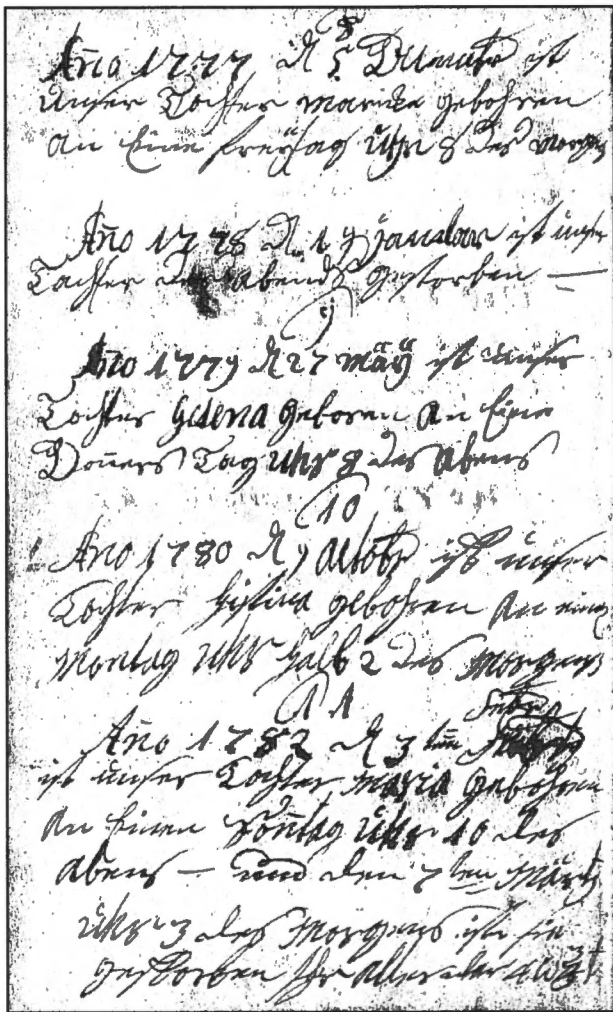 8
Año 1777 d 5 Decembr ist
unser Tochter maricke gebohren
an Eine freÿtag Uhr 8 des morgens
Año 1778 d 19 Januar ist unser
Tochter des abends gestorben —
9
Año 1779 d 27 maÿ ist unser
Tochter Helena geboren an Eine
Doners Tag Uhr 8 des abens
10
Año 1780 d 9 octobr ist unser
Tochter gebohren an eine
Montag Uhr halb 2 des morgens
11
Febr
Año 1782 d 3 ten
ist unser Tochter Maria gebohren
an Einen Soñtag Uhr 10 des
abens — und den 7 ten Märtz
Uhr 3 des Morgens ist sie
gestorben Ihr alter